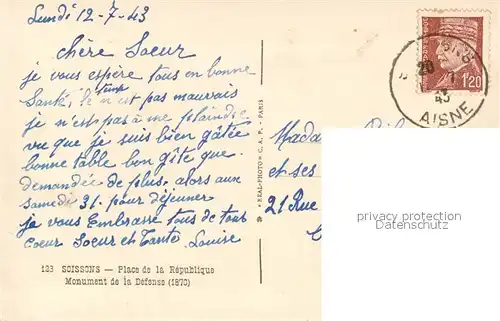 Lundi 12-7-43
chère Soeur
je vous espère tous en bonne
Santé, le temps n'est pas mauvais
je n'est pas à me plaindre
vu que je suis bien gâtée
bonne table bon gîte que
demandée de plus, alors au
samedi 31. pour déjeuner
je vous Embrasse tous de tout
coeur Soeur et Tante Louise
123 SOISSONS — Place de la République
Monument de la Défense (1870)
"REAL-PHOTO" C. A. P. - PARIS
Mada
et ses
21 Rue
1f20
20
43
AISNE
privacy protection
oldthing.de